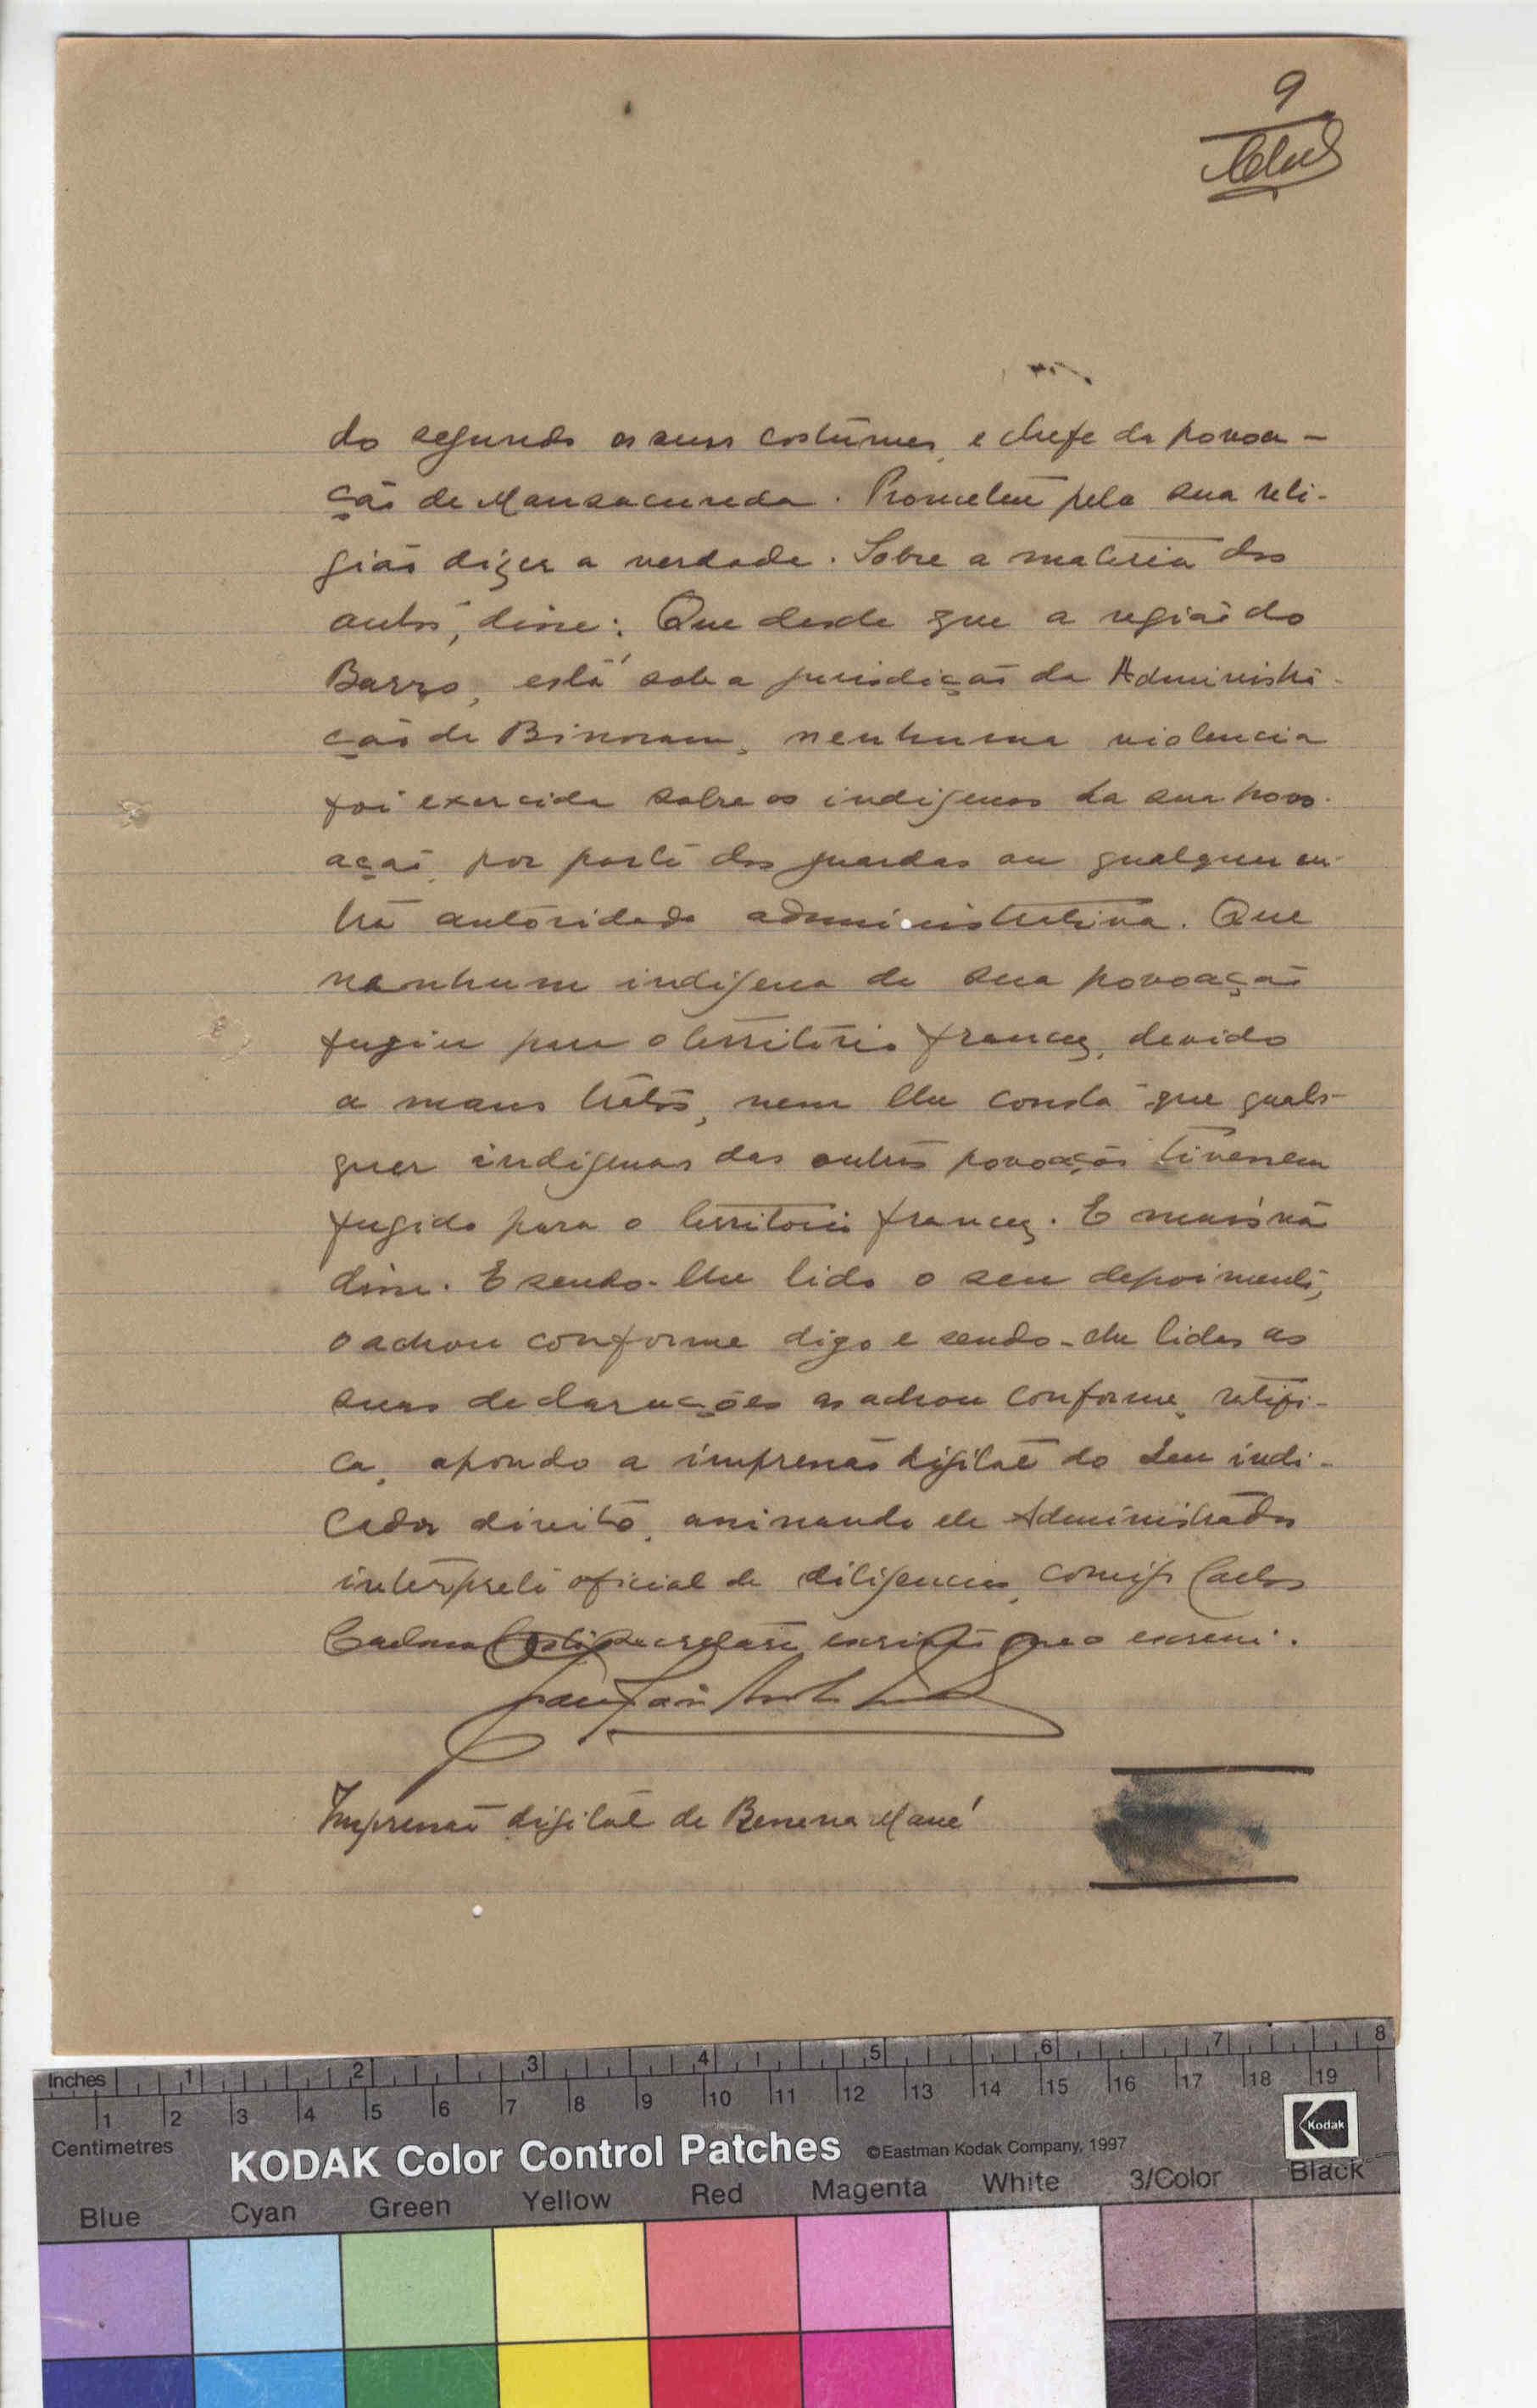 9
do segundo os seus costumes, e chefe da povoa-
ção de Mansacunda. Prometeu pela sua reli-
gião dizer a verdade. Sobre a materia dos
autos, disse: Que desde que a região do
Barro, está sob a jurisdição da Administra-
ção de Binnram, nenhuma violencia
foi exercida sobre os indigenas da sua povo-
ação, por parte dos guardas ou qualquer ou-
tra autoridade administrativa. Que
nenhum indigena de sua povoação
fugiu para o territorio francez, devido
a maus tratos, nem lhe consta que quals-
quer indigenas das outras povoações tivessem
fugido para o territorio francez. E mais não
disse. E sendo-lhe lido o seu depoimento,
o achou conforme digo e sendo-lhe lidas as
suas declarações as achou conforme, ratifi-
ca, apondo a impressão digital do seu indi-
cador direito, assinando ele Administrador
interprete oficial de diligencias, comigo Carlos
secretario escrivão que o escrevi.
Impressão digital de Benena Mané
Inches 1 2 3 4 5 6 7 8
1 2 3 4 5 6 7 8 9 10 11 12 13 14 15 16 17 18 19
Centimetres
KODAK Color Control Patches ©Eastman Kodak Company, 1997
Kodak
Blue Cyan Green Yellow Red Magenta White 3/Color Black